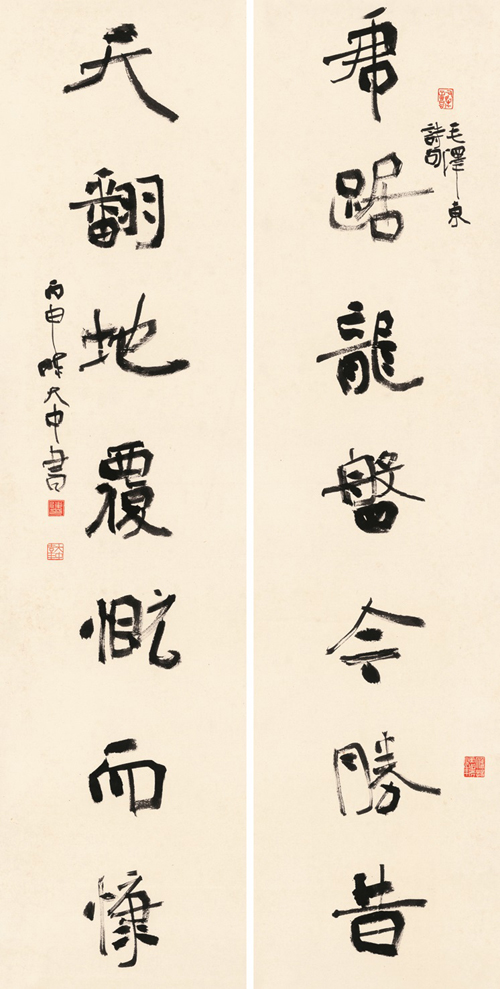 毛澤東
詩句
虎踞龍盤今勝昔
天翻地覆慨而慷
丙申陳大中書